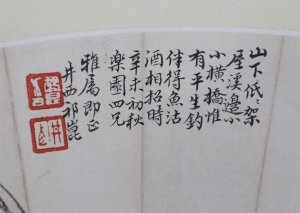 山下低〻架
屋溪邊小
小橫橋惟
有平生釣
伴得魚沽
酒相招時
辛未初秋
樂園四兄
雅屬即正
井西祁崑